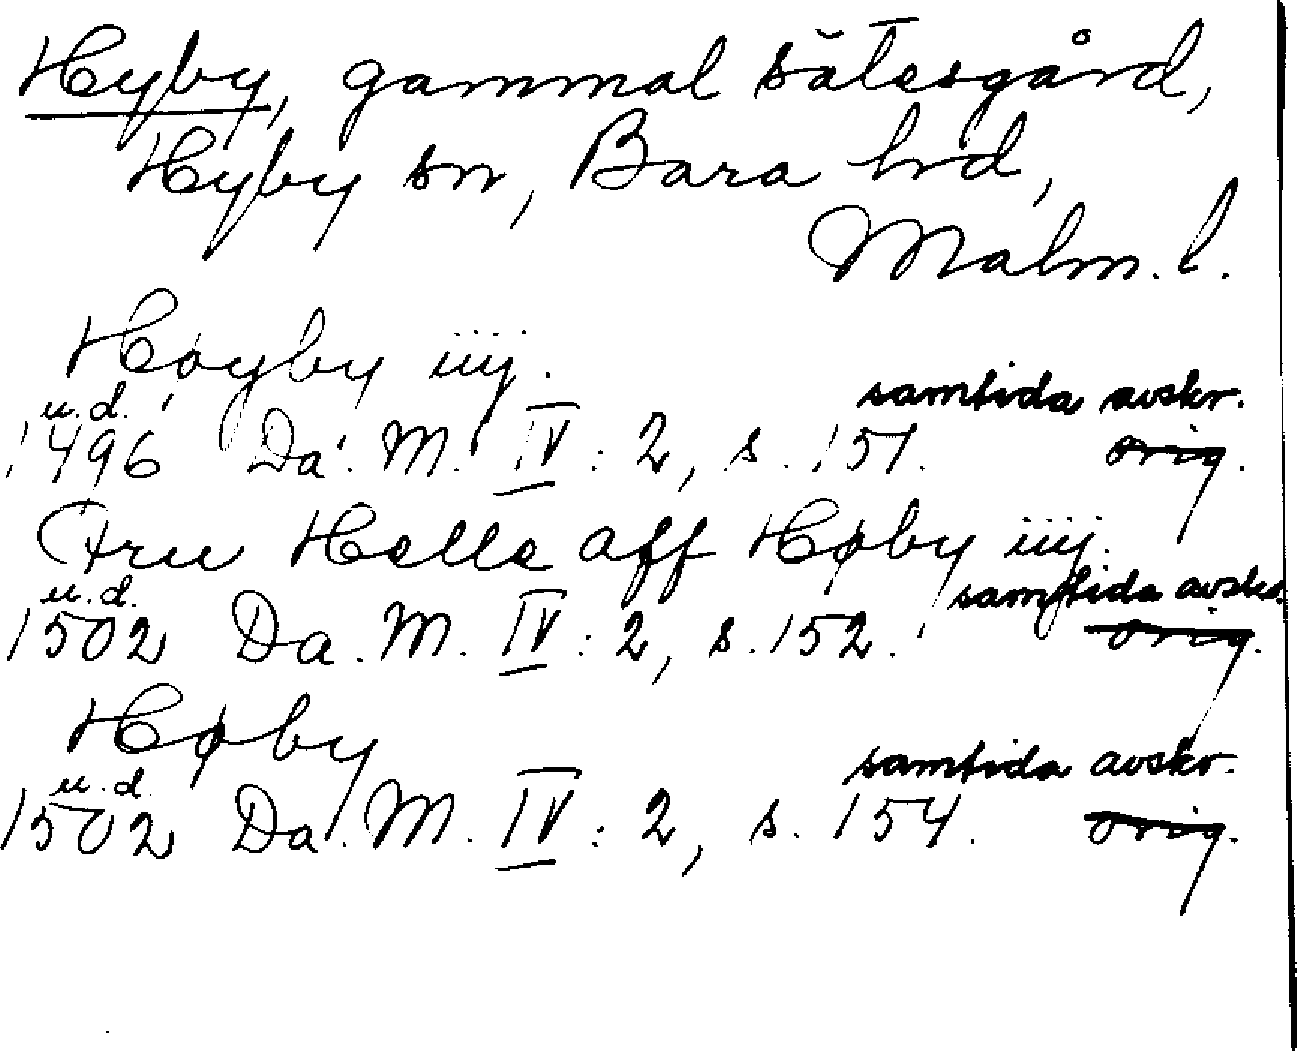 Hyby, gammal sätesgård,
Hyby sn, Bara hd,
Malm. l.
Høyby iiij.
u.d. samtida avskr.
1496 Da. M. IV : 2, s. 151. orig.
Fru Helle aff Høby iiij.
u.d. samtida avskr.
1502 Da. M. IV : 2, s. 152. orig.
Høby
u.d. samtida avskr.
1502 Da. M. IV : 2, s. 154. orig.